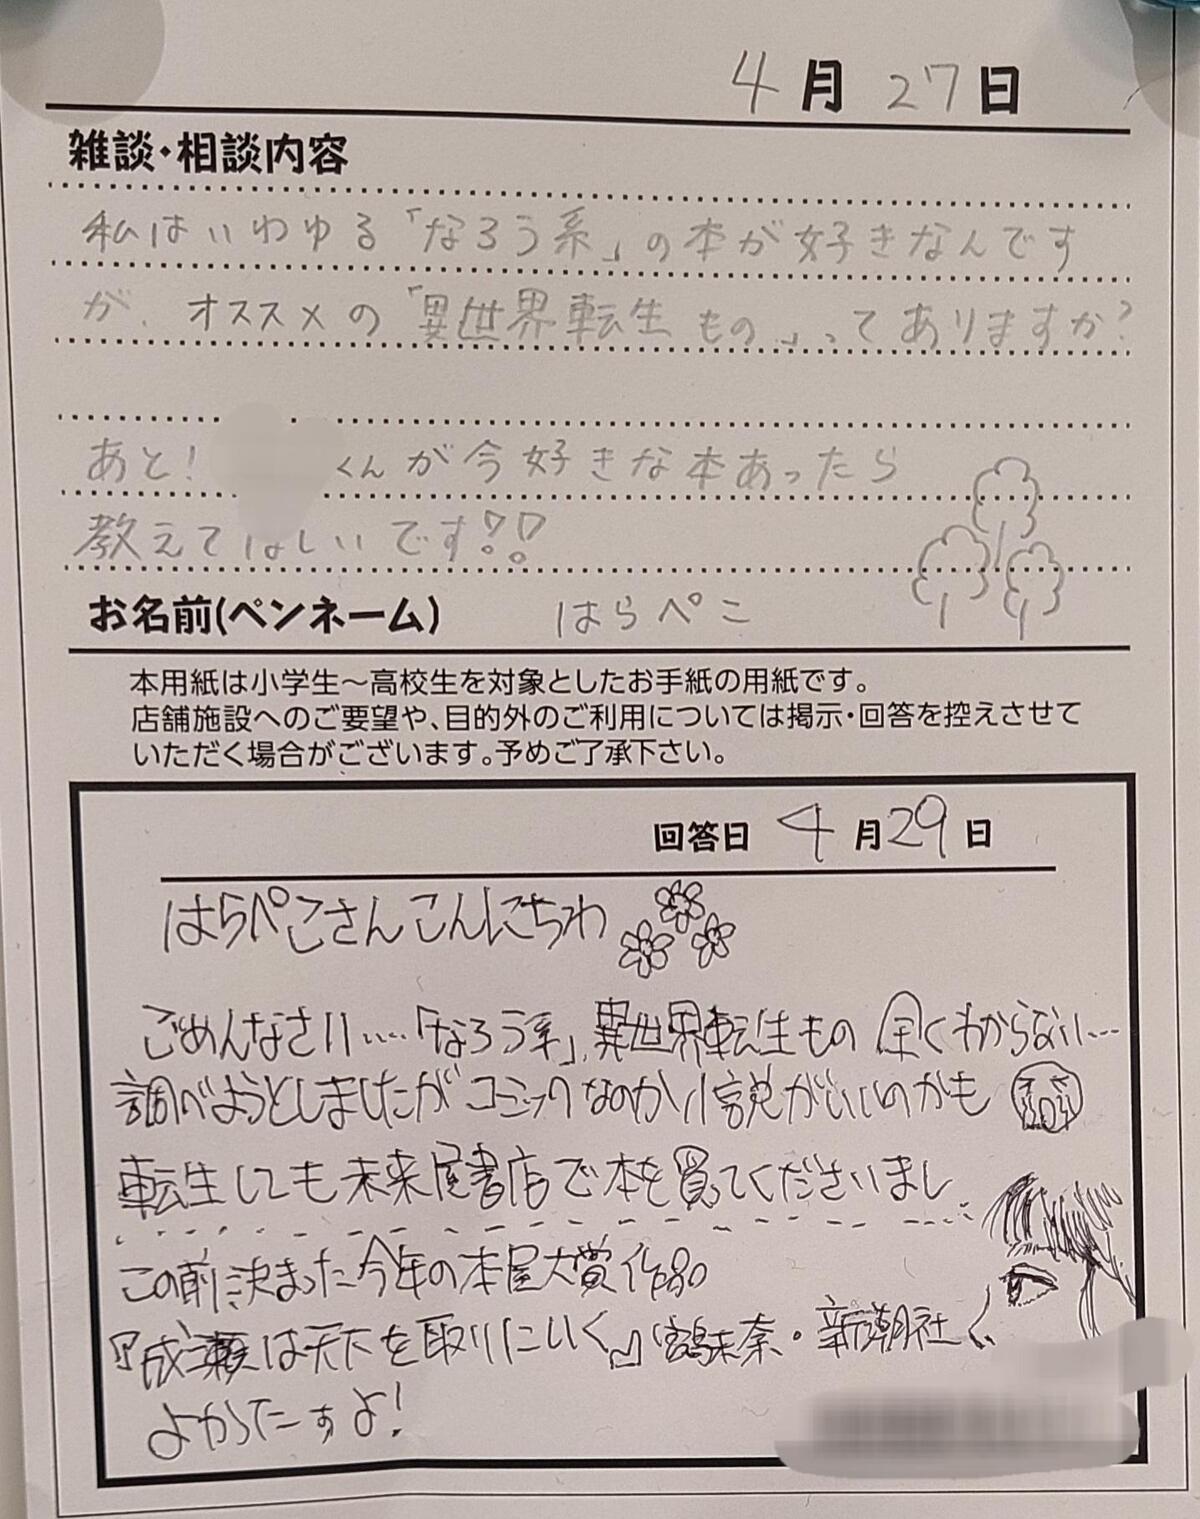 4月27日
雑談・相談内容
私はいわゆる「なろう系」の本が好きなんです
が、オススメの「異世界転生もの」ってありますか?
あと! くんが今好きな本あったら
教えてほしいです!!
お名前(ペンネーム) はらぺこ
本用紙は小学生〜高校生を対象としたお手紙の用紙です。
店舗施設へのご要望や、目的外のご利用については掲示・回答を控えさせて
いただく場合がございます。予めご了承下さい。
回答日 4月29日
はらぺこさんこんにちわ
ごめんなさい……「なろう系」異世界転生もの 全くわからない…
調べようとしましたがコミックなのか小説がいいのかも
転生しても未来屋書店で本を買ってくださいまし
この前決まった今年の本屋大賞作品
『成瀬は天下を取りにいく』宮島未奈・新潮社
よかったすよ!